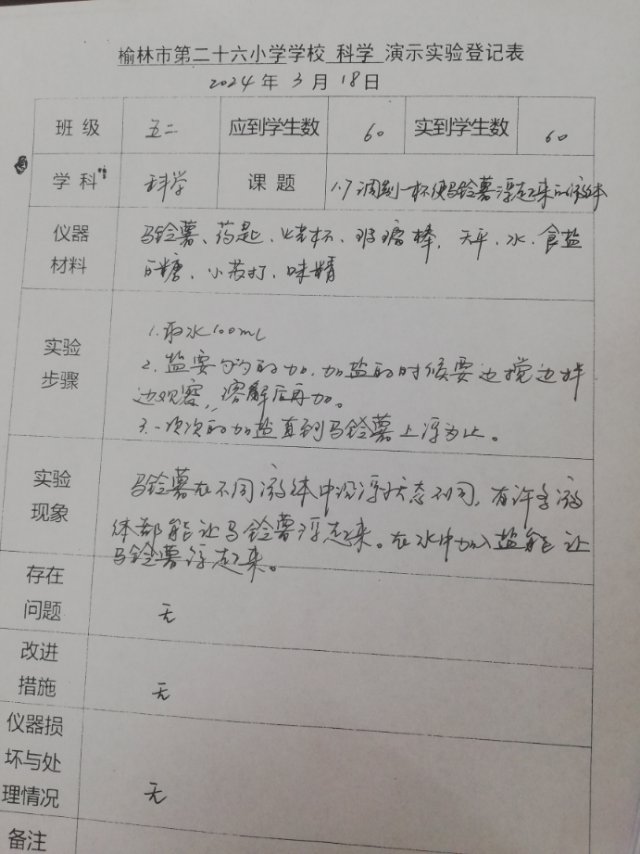 榆林市第二十六小学学校 科学 演示实验登记表
2024年3月18日
班级 五二 应到学生数 60 实到学生数 60
学科 科学 课题 1.7调制一杯使马铃薯浮起来的液体
仪器材料 马铃薯、药匙、烧杯、玻璃棒,天平、水、食盐
白糖、小苏打、味精
实验步骤 1.取水100mL
2.盐要匀匀的加,加盐的时候要边搅边拌
边观察,溶解后再加。
3.一次次的加盐直到马铃薯上浮为止。
实验现象 马铃薯在不同液体中沉浮状态不同,有许多液
体都能让马铃薯浮起来。在水中加入盐能让
马铃薯浮起来。
存在问题 无
改进措施 无
仪器损坏与处理情况 无
备注